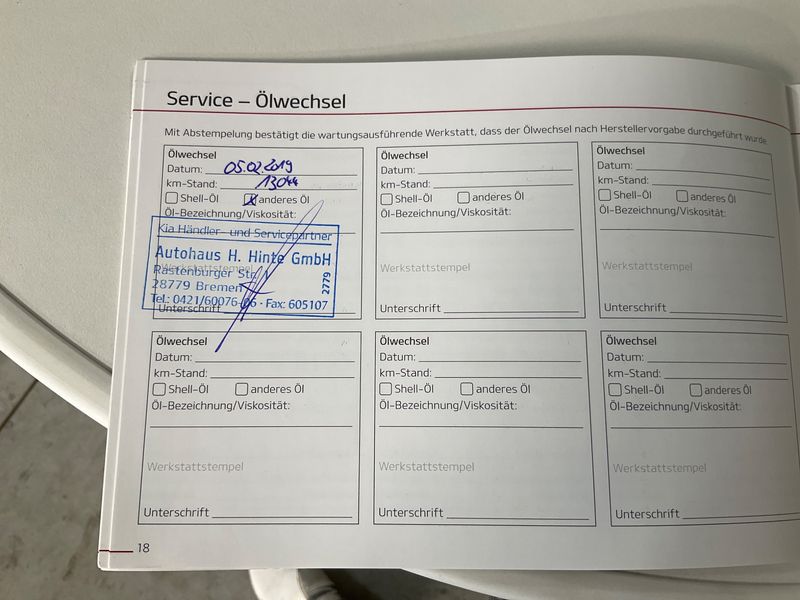 Service – Ölwechsel
Mit Abstempelung bestätigt die wartungsausführende Werkstatt, dass der Ölwechsel nach Herstellervorgabe durchgeführt wurde.
Ölwechsel
Datum: 05.02.2019
km-Stand: 13044
Shell-Öl anderes Öl
Öl-Bezeichnung/Viskosität:
Kia Händler- und Servicepartner
Autohaus H. Hinte GmbH
Werkstattstempel
Rastenburger Str. 1
28779 Bremen
2779
Tel.: 0421/60076-06 · Fax: 605107
Unterschrift
Ölwechsel
Datum:
km-Stand:
Shell-Öl anderes Öl
Öl-Bezeichnung/Viskosität:
Werkstattstempel
Unterschrift
Ölwechsel
Datum:
km-Stand:
Shell-Öl anderes Öl
Öl-Bezeichnung/Viskosität:
Werkstattstempel
Unterschrift
Ölwechsel
Datum:
km-Stand:
Shell-Öl anderes Öl
Öl-Bezeichnung/Viskosität:
Werkstattstempel
Unterschrift
Ölwechsel
Datum:
km-Stand:
Shell-Öl anderes Öl
Öl-Bezeichnung/Viskosität:
Werkstattstempel
Unterschrift
Ölwechsel
Datum:
km-Stand:
Shell-Öl anderes Öl
Öl-Bezeichnung/Viskosität:
Werkstattstempel
Unterschrift
18